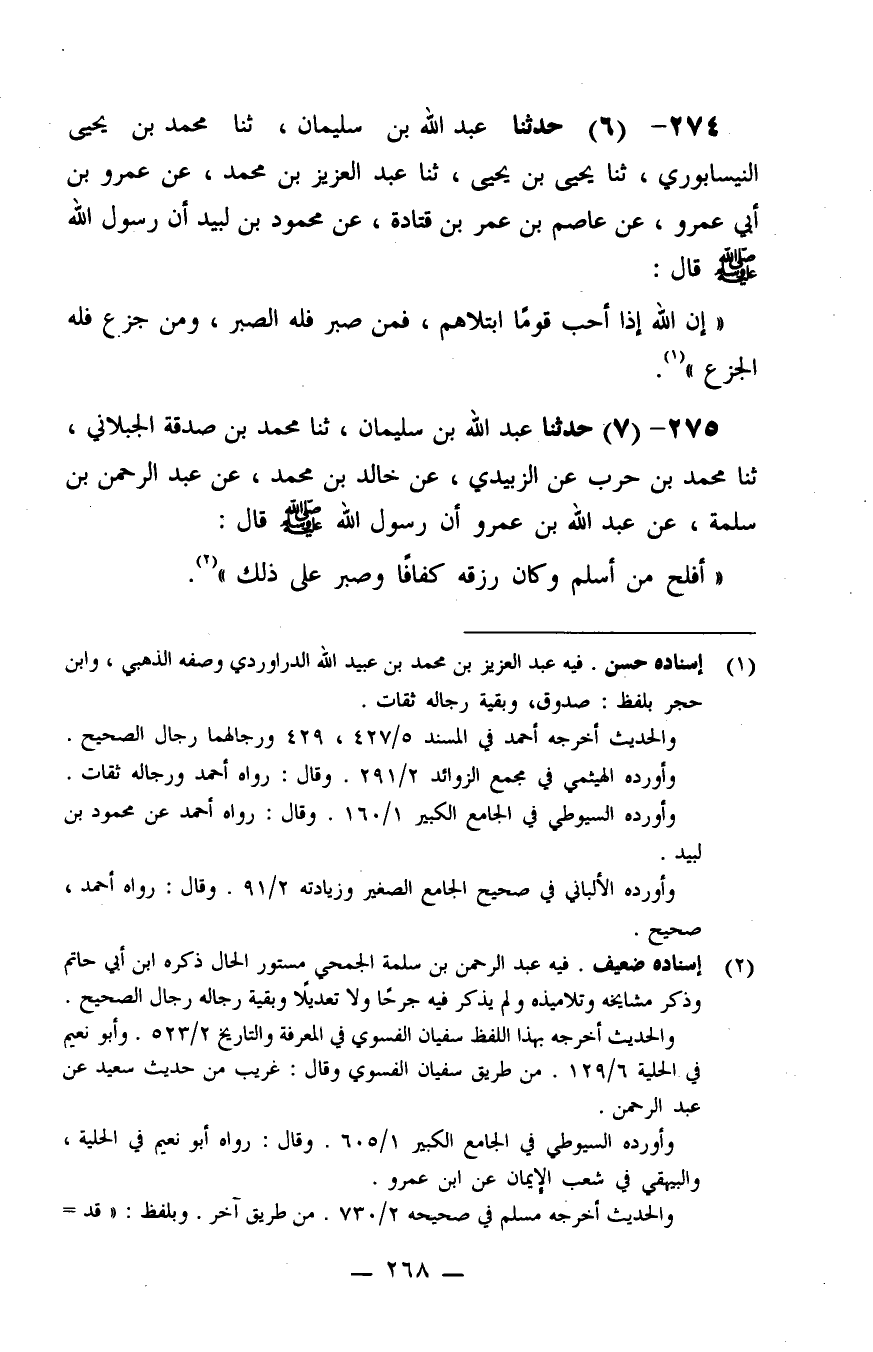 ٢٧٤- (٦) حدثنا عبد الله بن سليمان ، ثنا محمد بن يحيى
النيسابوري ، ثنا يحيى بن يحيى ، ثنا عبد العزيز بن محمد ، عن عمرو بن
أبي عمرو ، عن عاصم بن عمر بن قتادة ، عن محمود بن لبيد أن رسول الله
ﷺ قال :
« إن الله إذا أحب قومًا ابتلاهم ، فمن صبر فله الصبر ، ومن جزع فله
الجزع »(١).
٢٧٥- (٧) حدثنا عبد الله بن سليمان ، ثنا محمد بن صدقة الجبلاني ،
ثنا محمد بن حرب عن الزبيدي ، عن خالد بن محمد ، عن عبد الرحمن بن
سلمة ، عن عبد الله بن عمرو أن رسول الله ﷺ قال :
« أفلح من أسلم وكان رزقه كفافًا وصبر على ذلك »(٢).
(١) إسناده حسن . فيه عبد العزيز بن محمد بن عبيد الله الدراوردي وصفه الذهبي ، وابن
حجر بلفظ : صدوق، وبقية رجاله ثقات .
والحديث أخرجه أحمد في المسند ٤٢٧/٥ ، ٤٢٩ ورجالهما رجال الصحيح .
وأورده الهيثمي في مجمع الزوائد ٢٩١/٢ . وقال : رواه أحمد ورجاله ثقات .
وأورده السيوطي في الجامع الكبير ١٦٠/١ . وقال : رواه أحمد عن محمود بن
لبيد .
وأورده الألباني في صحيح الجامع الصغير وزيادته ٩١/٢ . وقال : رواه أحمد ،
صحيح .
(٢) إسناده ضعيف . فيه عبد الرحمن بن سلمة الجمحي مستور الحال ذكره ابن أبي حاتم
وذكر مشايخه وتلاميذه ولم يذكر فيه جرحًا ولا تعديلًا وبقية رجاله رجال الصحيح .
والحديث أخرجه بهذا اللفظ سفيان الفسوي في المعرفة والتاريخ ٥٢٣/٢ . وأبو نعيم
في الحلية ١٢٩/٦ . من طريق سفيان الفسوي وقال : غريب من حديث سعيد عن
عبد الرحمن .
وأورده السيوطي في الجامع الكبير ٦٠٥/١ . وقال : رواه أبو نعيم في الحلية ،
والبيهقي في شعب الإيمان عن ابن عمرو .
والحديث أخرجه مسلم في صحيحه ٧٣٠/٢ . من طريق آخر . وبلفظ : « قد =
— ٢٦٨ —